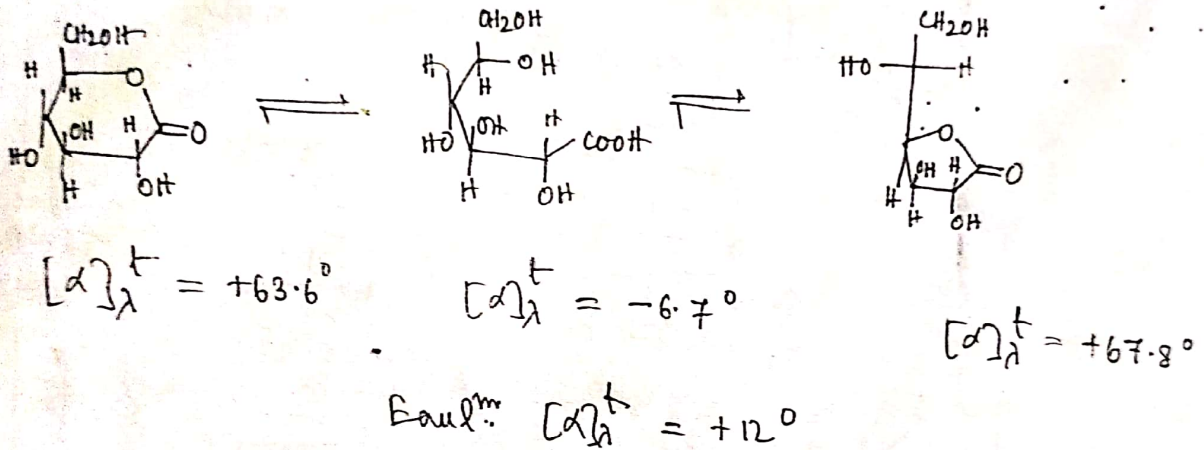 CH2OH
H
O
H
OH
H
O
HO
H
OH
CH2OH
H
OH
H
HO
OH
H
COOH
H
OH
CH2OH
HO
H
O
OH
H
O
H
H
OH
[α]λᵗ = +63.6°
[α]λᵗ = -6.7°
[α]λᵗ = +67.8°
[α]λᵗ = +12°